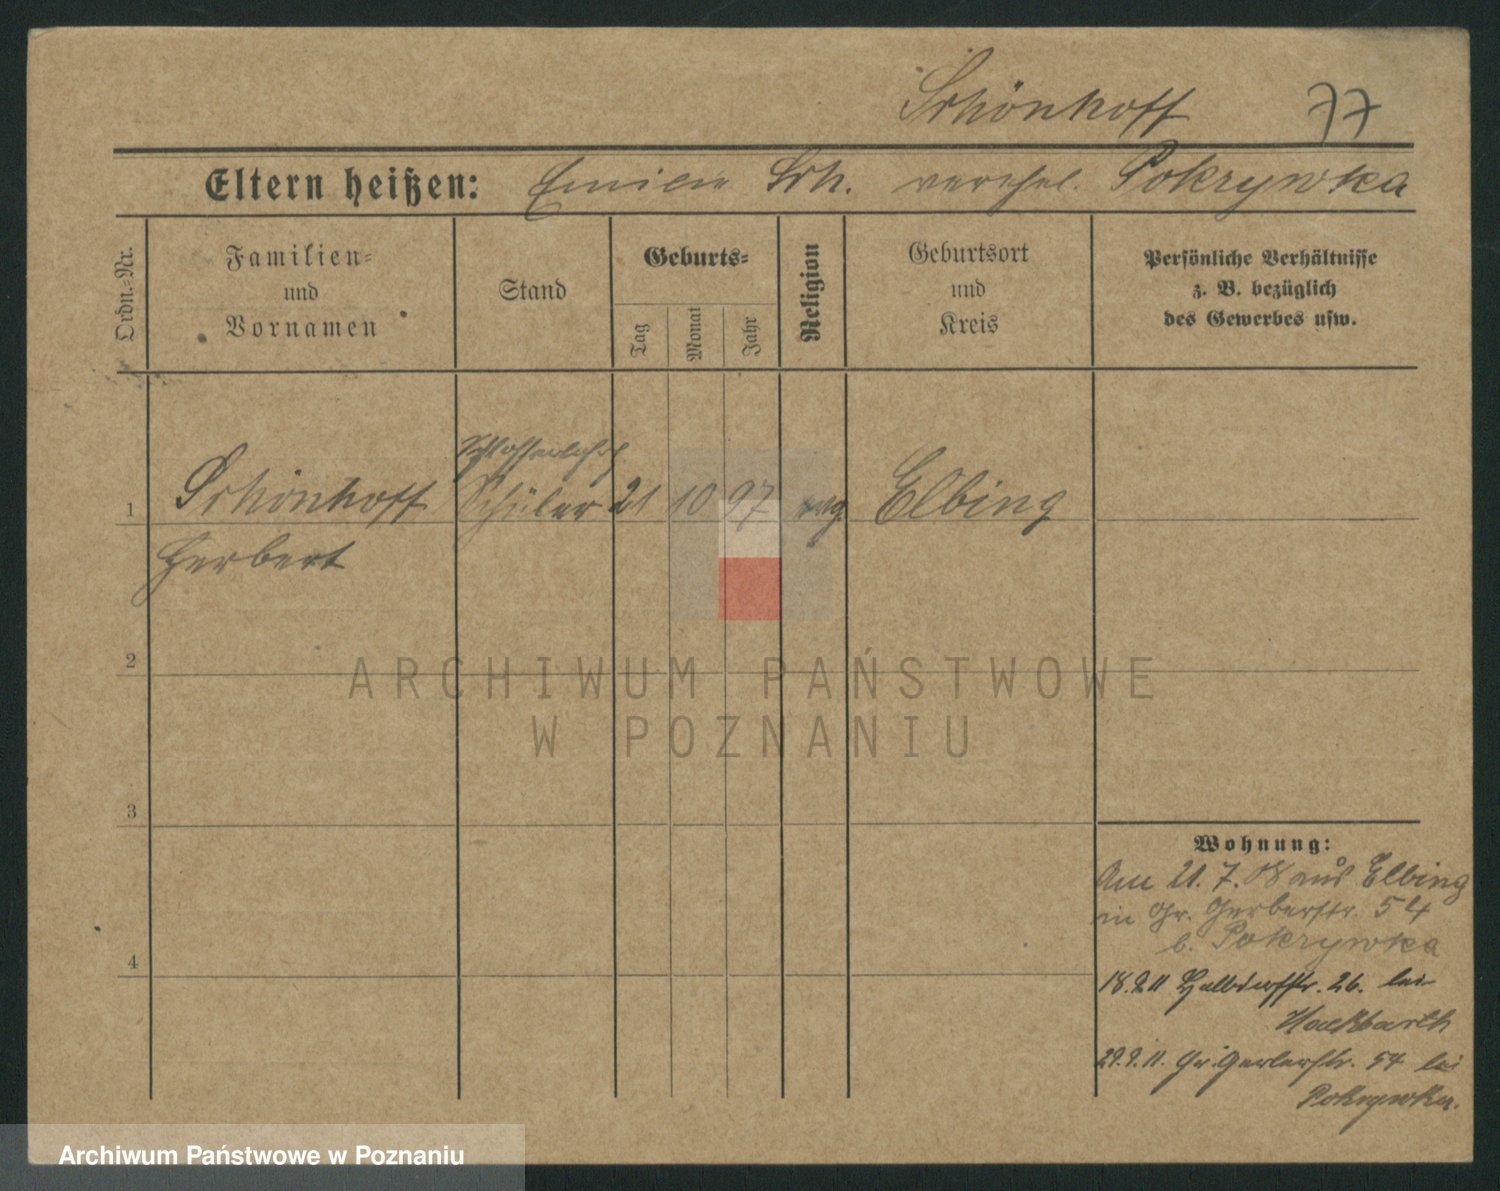 Schönhoff 77
Eltern heißen: Emilie Sch. verehel. Pokrywka
Ordn.-Nr.
Familien-
und
Vornamen
Stand
Geburts-
Tag
Monat
Jahr
Religion
Geburtsort
und
Kreis
Persönliche Verhältnisse
z. B. bezüglich
des Gewerbes usw.
Schlosserlehrl
1 Schönhoff Schüler 21 10 97 evg Elbing
Herbert
2
3
4
Wohnung:
Am 21. 7. 08 aus Elbing
in Gr. Gerberstr. 54
b. Pokrywka
18.9.11 Halbdorfstr. 26. bei
Hackbarth
29.9.11. Gr. Gerberstr. 54 bei
Pokrywka.
ARCHIWUM PAŃSTWOWE
W POZNANIU
Archiwum Państwowe w Poznaniu